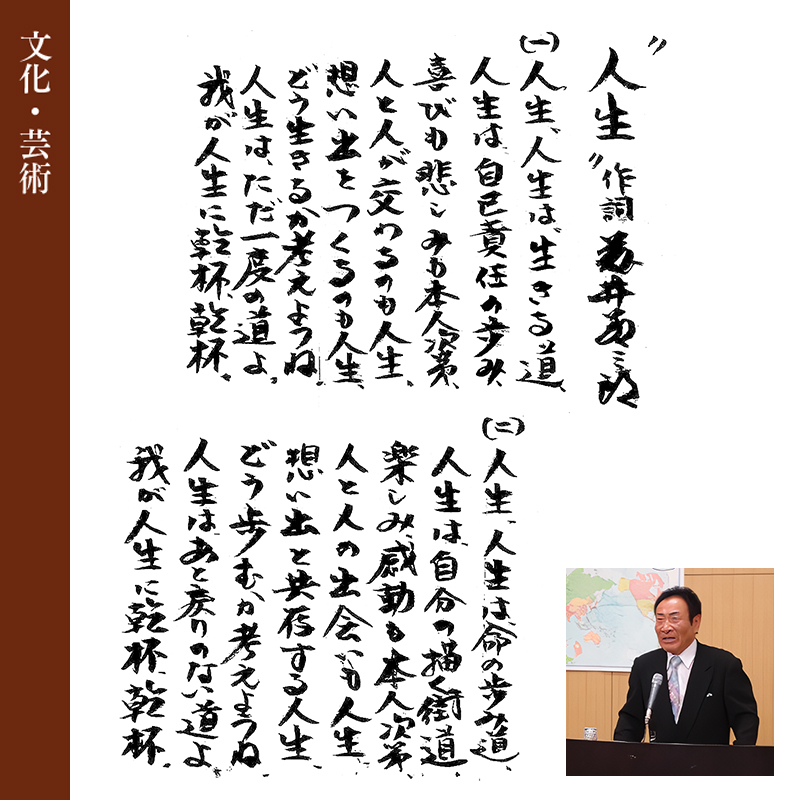 文化・芸術
〝人生〟作詞 井 三郎
(一)人生、人生は、生きる道、
人生は、自己責任の歩み、
喜びも悲しみも本人次第、
人と人が交わるのも人生、
想い出をつくるのも人生、
どう生きるか考えようね、
人生は、ただ一度の道よ、
我が人生に乾杯、乾杯、
(二)人生、人生は命の歩み道、
人生は、自分の描く街道、
楽しみ、感動も本人次第、
人と人の出会いも人生、
想い出と共存する人生、
どう歩むか考えようね、
人生は、あと戻りのない道よ、
我が人生に乾杯、乾杯、